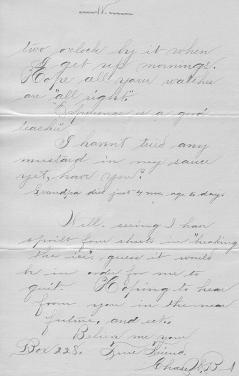 two oclock by it when
I get up mornings.
Hope all your watches
are "all right".
"Experience is a good
teacher"
I havnt tried any
mustard in my sauce
yet, have you?
Grandpa died just 4 mos. ago to day.
Well, seeing I have
spoilt four sheets in "breaking
the ice", guess it would
be in order for me to
quit. Hoping to hear
from you in the near
future, and etc.
Believe me your
Box 228. True Friend.
Chase